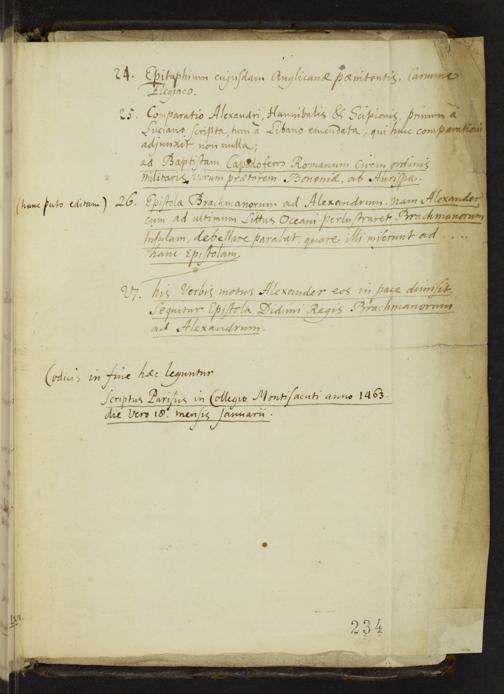 24. Epitaphium cujusdam Anglicanæ pœnitentis, Carmine
Elegiaco.
25. Comparatio Alexandri, Hannibalis & Scipionis, primum à
Luciano scripta, tum à Libano emendata, qui huic comparationi
adjunxit non nulla;
ad Baptistam Capdoferro Romanum Civem, ordinis
militaris, virum prætorem Bononiæ, ab Aurispa.
(hanc puto editam) 26. Epistola Brachmanorum ad Alexandrum. nam Alexander
cum ad ultimum Littus Oceani perlustraret Brachmanorum
Insulam, debellare parabat, quare illi miserunt ad ....
hanc Epistolam.
27. his Verbis motus Alexander eos in pace dimisit
Sequitur Epistola Didimi Regis Brachmanorum
ad Alexandrum.
Codicis in fine hæc leguntur
scriptus Parisius in Collegio Montisacuti anno 1463.
die vero 18ª. mensis Januarii.
234